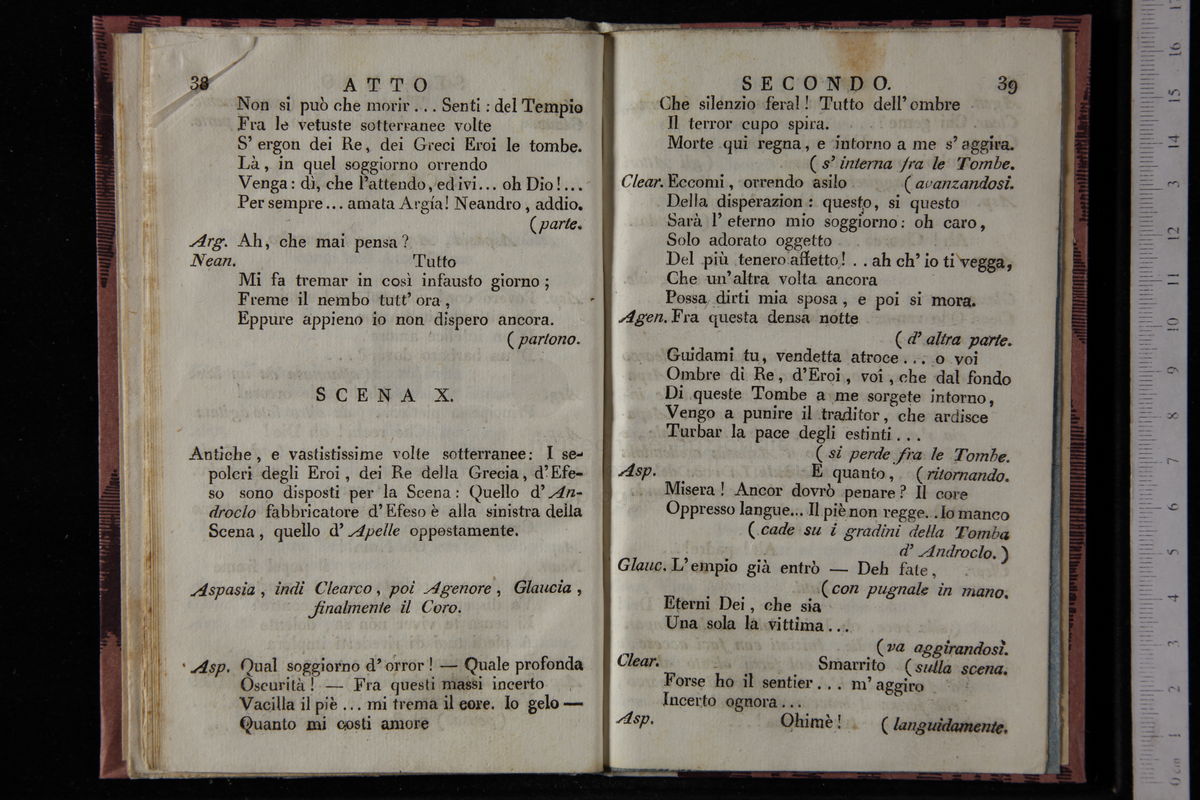 38
ATTO
Non si può che morir ... Senti : del Tempio
Fra le vetuste sotterranee volte
S' ergon dei Re, dei Greci Eroi le tombe.
Là, in quel soggiorno orrendo
Venga : dì, che l'attendo, ed ivi... oh Dio !...
Per sempre ... amata Argía! Neandro, addio.
( parte.
Arg. Ah, che mai pensa ?
Nean. Tutto
Mi fa tremar in così infausto giorno ;
Freme il nembo tutt' ora ,
Eppure appieno io non dispero ancora.
( partono.
SCENA X.
Antiche, e vastistissime volte sotterranee: I se-
polcri degli Eroi, dei Re della Grecia, d'Efe-
so sono disposti per la Scena: Quello d'An-
droclo fabbricatore d'Efeso è alla sinistra della
Scena, quello d' Apelle oppostamente.
Aspasia, indi Clearco, poi Agenore, Glaucia,
finalmente il Coro.
Asp. Qual soggiorno d'orror! — Quale profonda
Oscurità! — Fra questi massi incerto
Vacilla il piè ... mi trema il core. Io gelo —
Quanto mi costi amore
SECONDO.
39
Che silenzio feral! Tutto dell'ombre
Il terror cupo spira.
Morte qui regna, e intorno a me s'aggira.
( s' interna fra le Tombe.
Clear. Eccomi, orrendo asilo ( avanzandosi.
Della disperazion : questo, si questo
Sarà l'eterno mio soggiorno: oh caro,
Solo adorato oggetto
Del più tenero affetto! . . ah ch' io ti vegga,
Che un'altra volta ancora
Possa dirti mia sposa, e poi si mora.
Agen. Fra questa densa notte
( d' altra parte.
Guidami tu, vendetta atroce ... o voi
Ombre di Re, d'Eroi, voi, che dal fondo
Di queste Tombe a me sorgete intorno,
Vengo a punire il traditor, che ardisce
Turbar la pace degli estinti ...
( si perde fra le Tombe.
Asp. E quanto, ( ritornando.
Misera! Ancor dovrò penare? Il core
Oppresso langue... Il piè non regge. . Io manco
( cade su i gradini della Tomba
d' Androclo. )
Glauc. L'empio già entrò — Deh fate,
( con pugnale in mano.
Eterni Dei, che sia
Una sola la vittima ...
( va aggirandosi.
Clear. Smarrito ( sulla scena.
Forse ho il sentier ... m'aggiro
Incerto ognora ...
Asp. Ohimè! ( languidamente.
0 cm 1 2 3 4 5 6 7 8 9 10 11 12 13 14 15 16 17